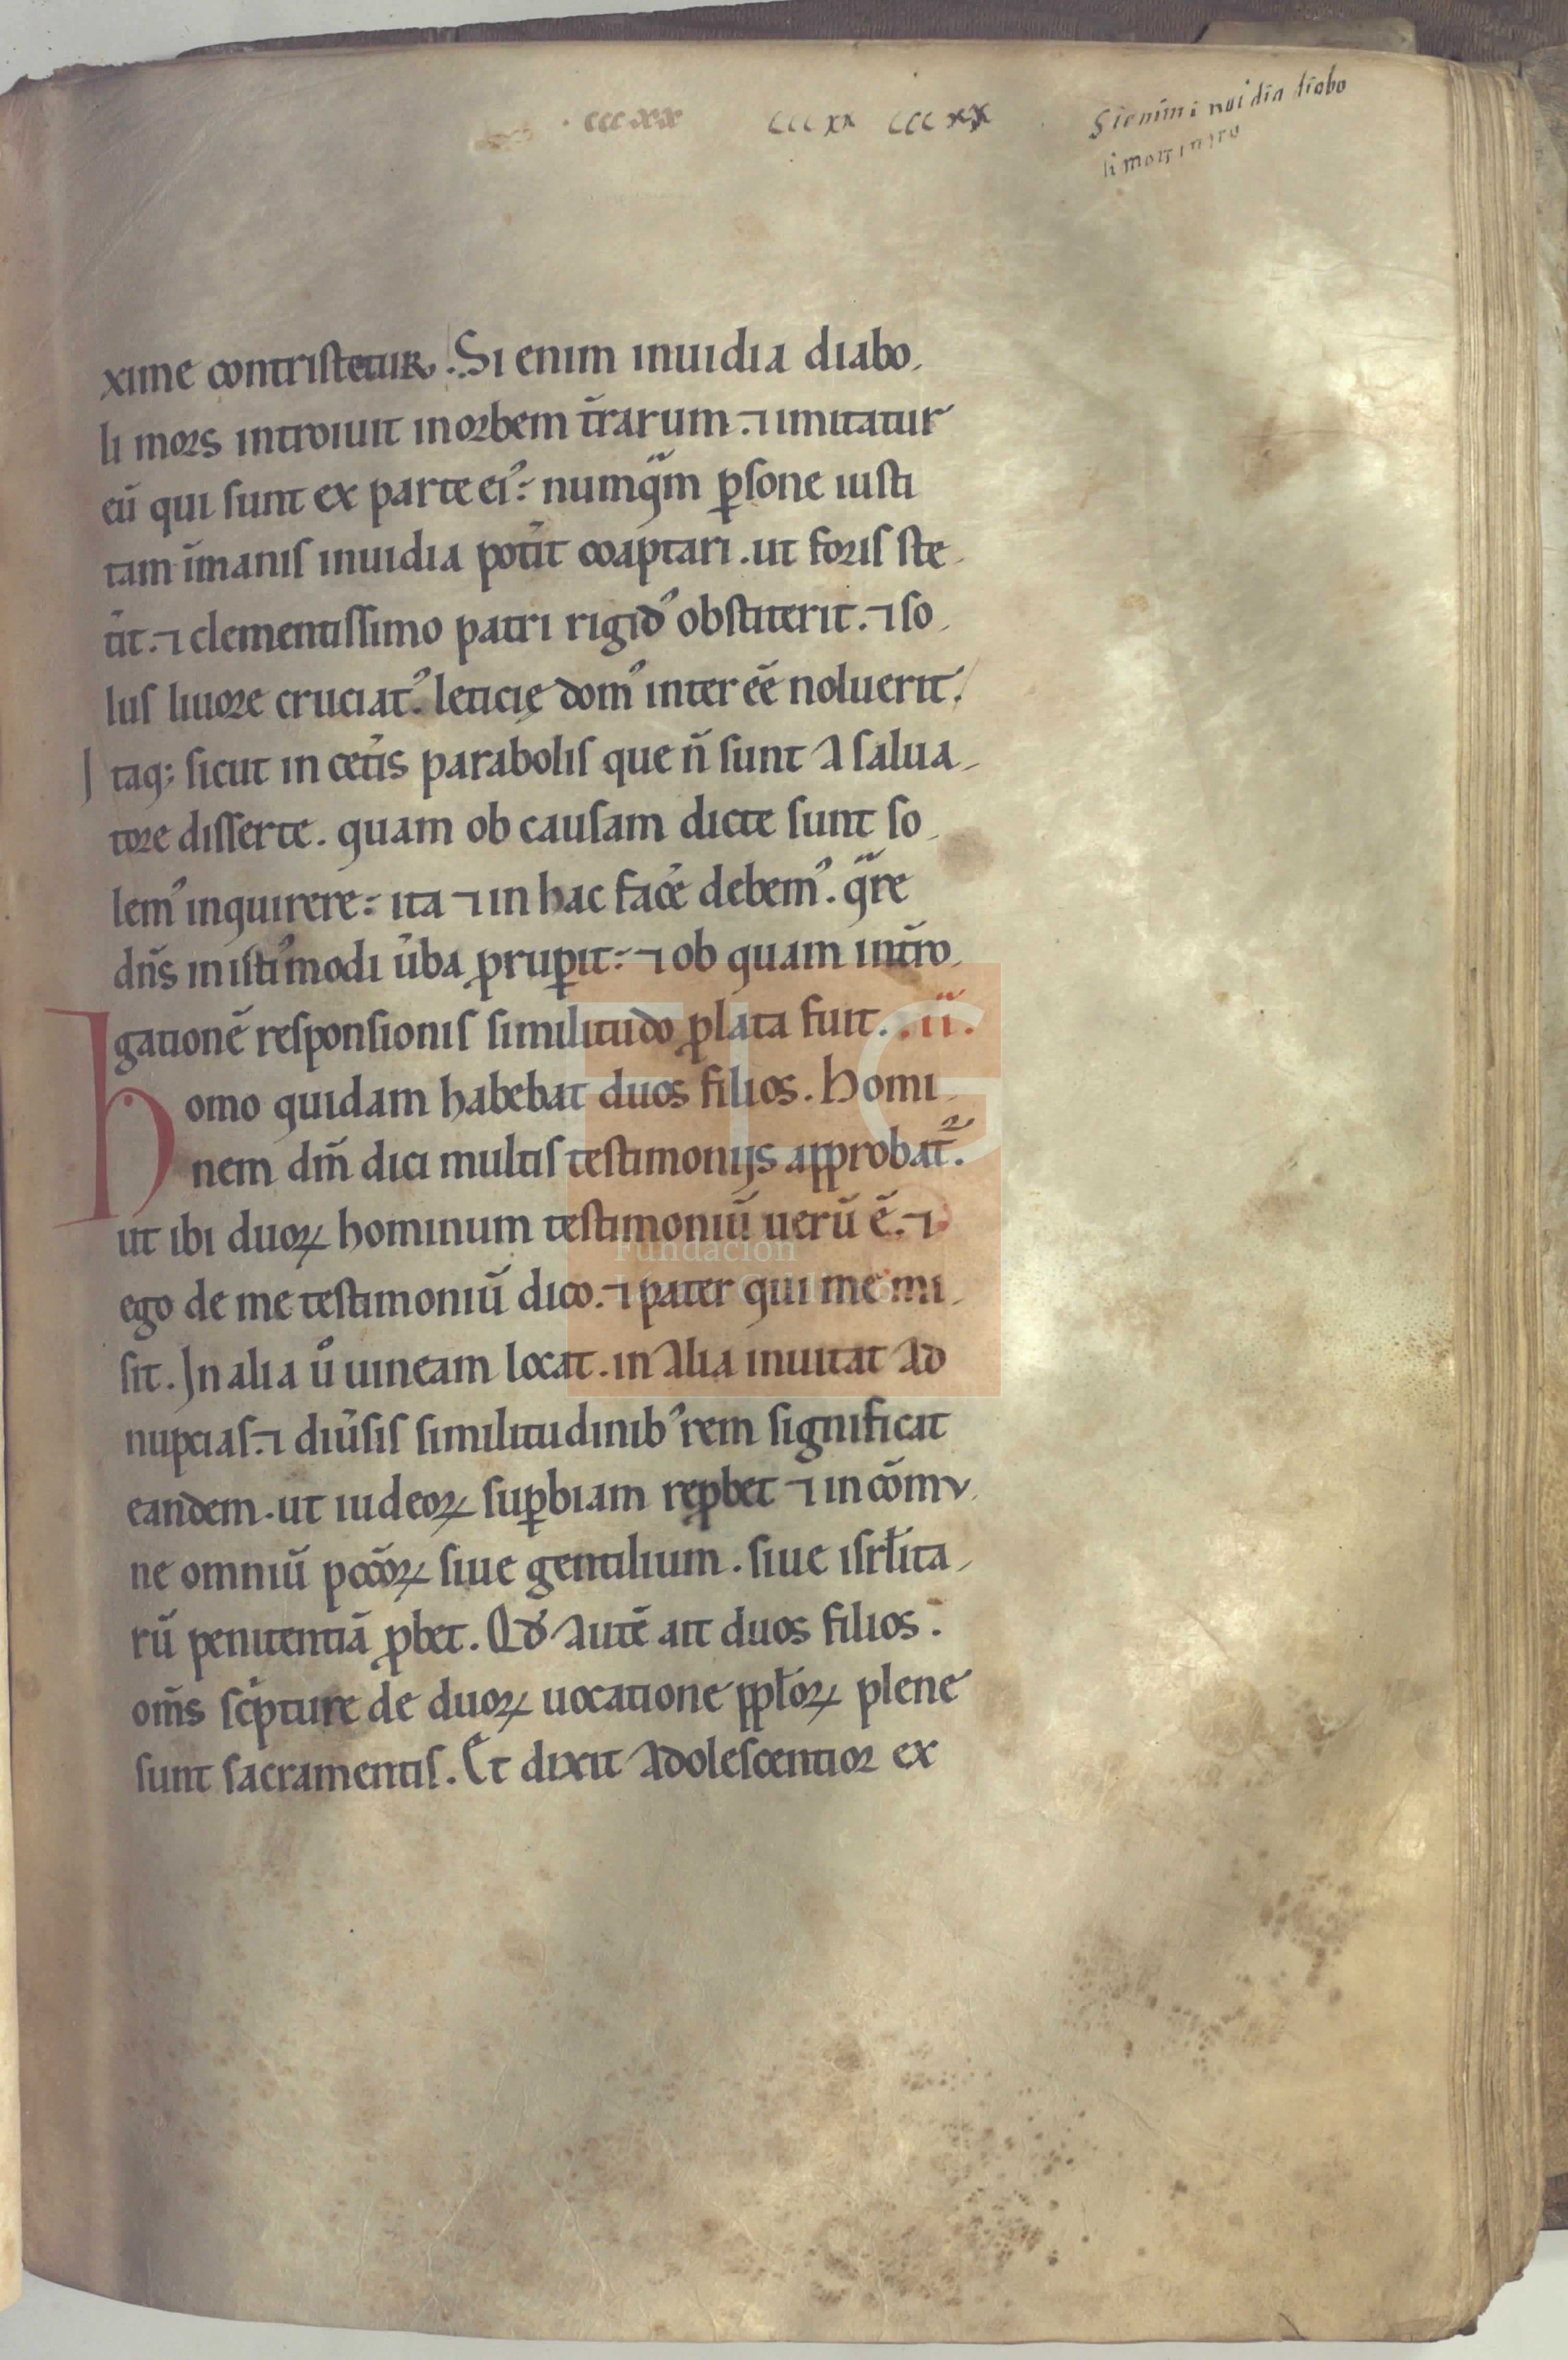 cccxx cccxx cccxx
Sienim inuidia diabo
li mors intro
xime contristetur. Si enim inuidia diabo
li mors introiuit in orbem t̄rarum. ⁊ imitatur
eū qui sunt ex parte eiꝰ: numq̄m ꝑsone iusti
tam īmanis inuidia pot̄it coaptari. ut foris ste
t̄it. ⁊ clementissimo patri rigidꝰ obstiterit. ⁊ so
lus liuore cruciatꝰ. leticię domꝰ inter eē̄ noluerit.
Itaq; sicut in cet̄is parabolis que n̄ sunt a salua
tore disserte. quam ob causam dicte sunt so
lemꝰ inquirere: ita ⁊ in hac fac̄e debemꝰ. q̄re
dn̄s in istiꝰmodi ūba ꝓruꝑit: ⁊ ob quam int̄ro
gationē responsionis similitudo ꝓlata fuit. .ii.
homo quidam habebat duos filios. Homi
nem dm̄ dici multis testimonijs approbat̄.
ut ibi duoꝝ hominum testimoniū uerū ē. ⁊
ego de me testimoniū dico. ⁊ pater qui me mi
sit. In alia uͦ uineam locat. in alia inuitat ad
nupcias. ⁊ diūsis similitudinibꝰ rem significat
eandem. ut iudeoꝝ suꝑbiam reꝓbet ⁊ in cōmu
ne omniū pcc̄oꝝ siue gentilium. siue isrł̄ita
rū penitentiā ꝓbet. Qd̄ autē ait duos filios.
om̄s scͥpture de duoꝝ uocatione ppł̄oꝝ plene
sunt sacramentis. Et dixit adolescentior ex
FLG
Fundación